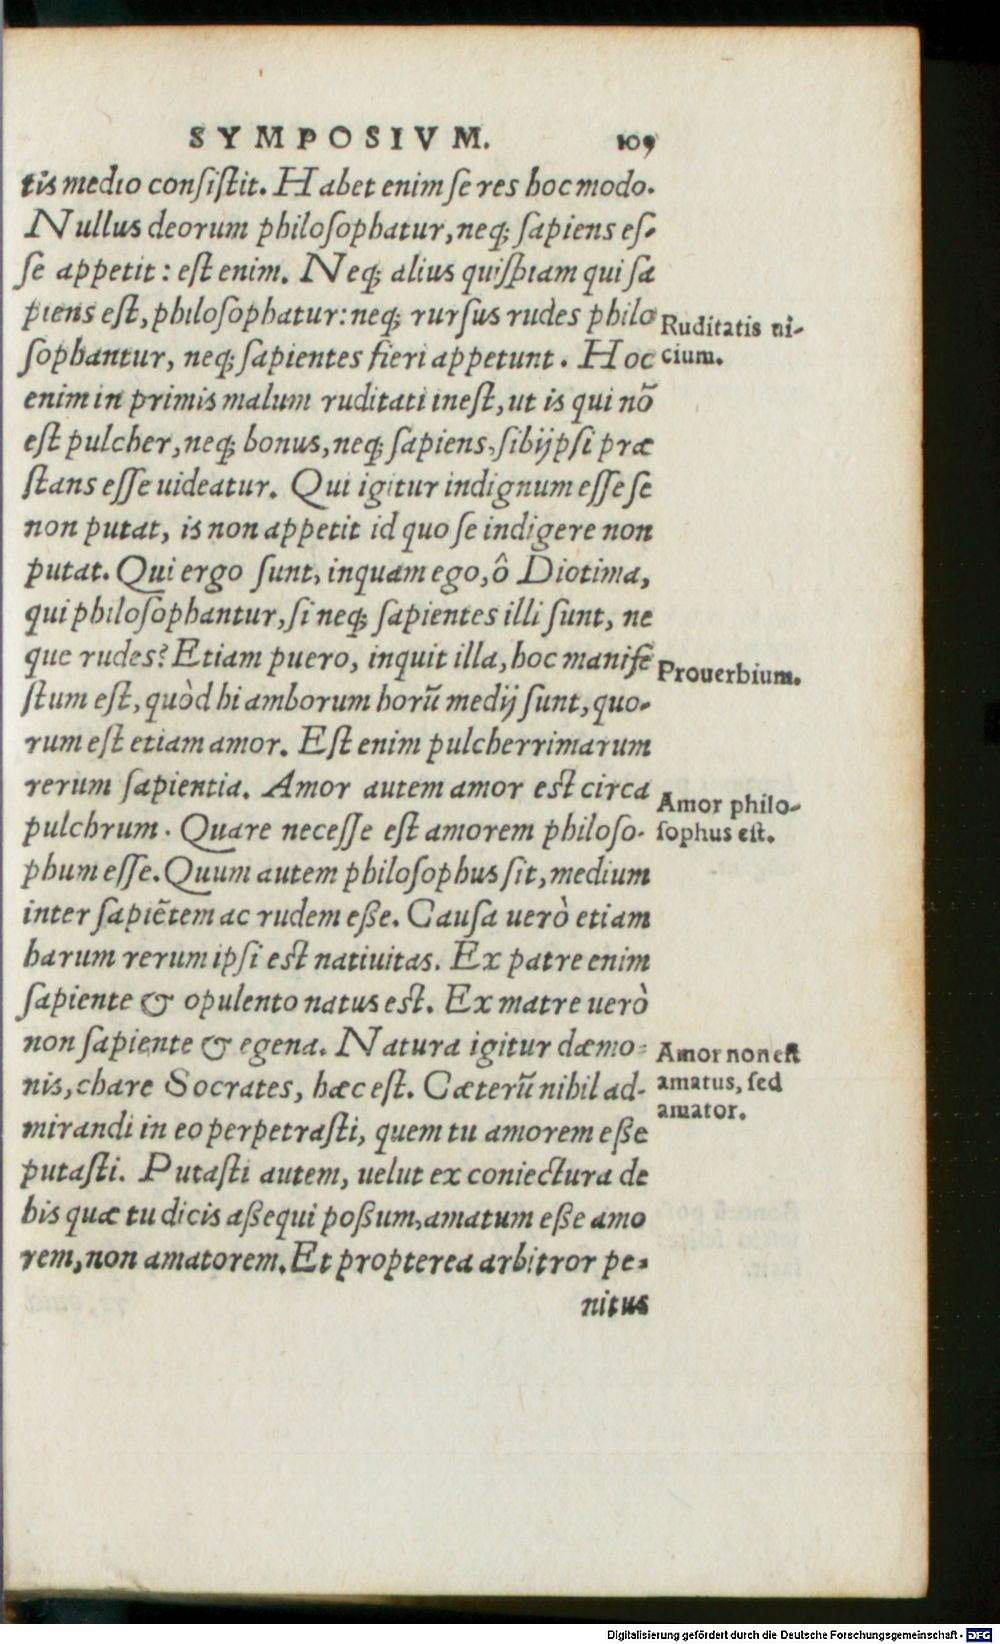 SYMPOSIVM. 109
tis medio consistit. Habet enim se res hoc modo.
Nullus deorum philosophatur, neq; sapiens es-
se appetit: est enim. Neq; alius quispiam qui sa
piens est, philosophatur: neq; rursus rudes philo
Ruditatis ui-
sophantur, neq; sapientes fieri appetunt. Hoc
cium.
enim in primis malum ruditati inest, ut is qui nõ
est pulcher, neq; bonus, neq; sapiens, sibijpsi præ
stans esse uideatur. Qui igitur indignum esse se
non putat, is non appetit id quo se indigere non
putat. Qui ergo sunt, inquam ego, ô Diotima,
qui philosophantur, si neq; sapientes illi sunt, ne
que rudes? Etiam puero, inquit illa, hoc manife
Prouerbium.
stum est, quòd hi amborum horũ medij sunt, quo-
rum est etiam amor. Est enim pulcherrimarum
rerum sapientia. Amor autem amor est circa
Amor philo-
pulchrum. Quare necesse est amorem philoso-
sophus est.
phum esse. Quum autem philosophus sit, medium
inter sapiẽtem ac rudem eße. Causa uerò etiam
harum rerum ipsi est natiuitas. Ex patre enim
sapiente & opulento natus est. Ex matre uerò
non sapiente & egena. Natura igitur dæmo-
Amor non est
nis, chare Socrates, hæc est. Cæterũ nihil ad-
amatus, sed
amator.
mirandi in eo perpetrasti, quem tu amorem eße
putasti. Putasti autem, uelut ex coniectura de
bis quæ tu dicis aßequi poßum, amatum eße amo
rem, non amatorem. Et propterea arbitror pe-
nitus
Digitalisierung gefördert durch die Deutsche Forschungsgemeinschaft - DFG